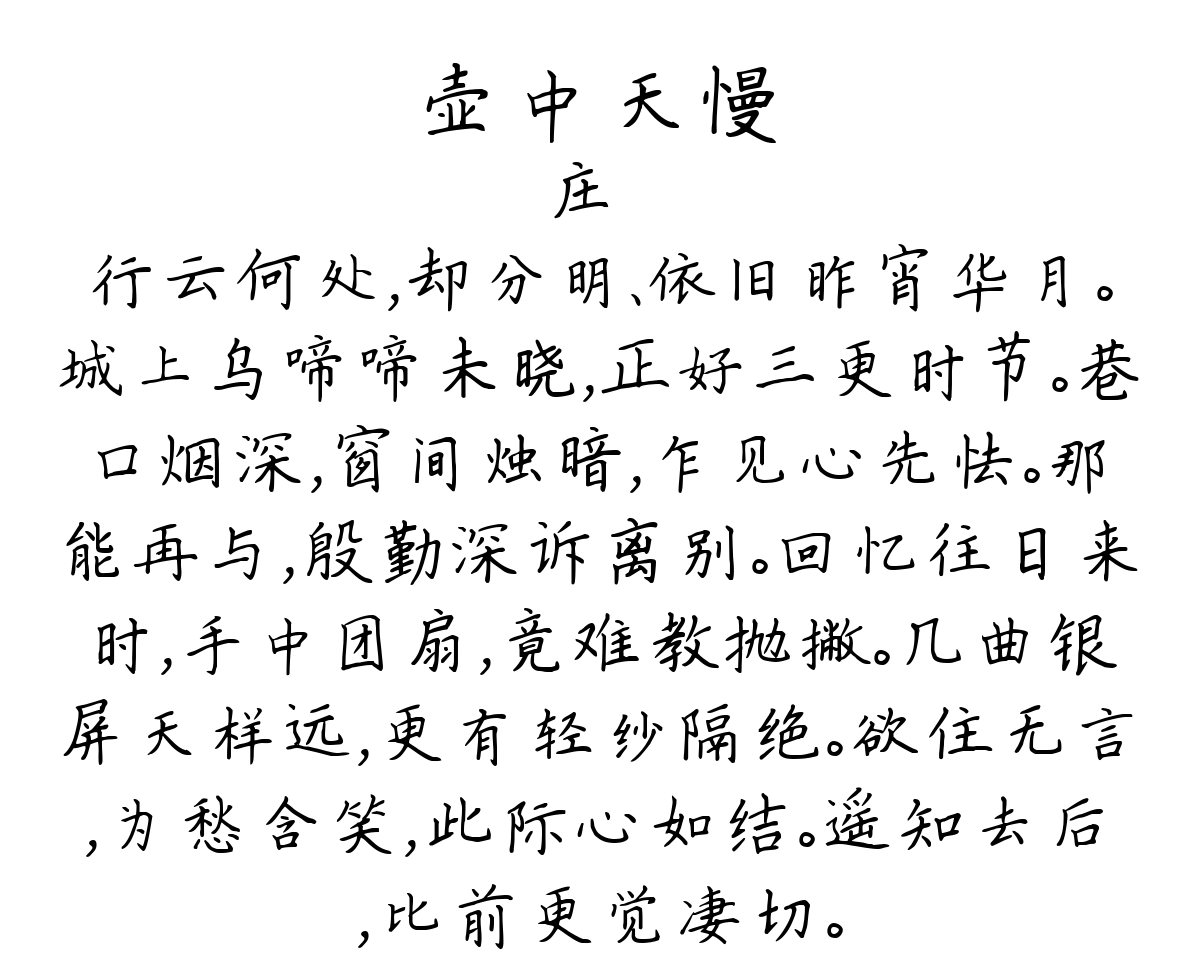 壶中天慢
庄
行云何处,却分明、依旧昨宵华月。
城上乌啼啼未晓,正好三更时节。巷
口烟深,窗间烛暗,乍见心先怯。那
能再与,殷勤深诉离别。回忆往日来
时,手中团扇,竟难教抛撇。几曲银
屏天样远,更有轻纱隔绝。欲住无言
,为愁含笑,此际心如结。遥知去后
,比前更觉凄切。